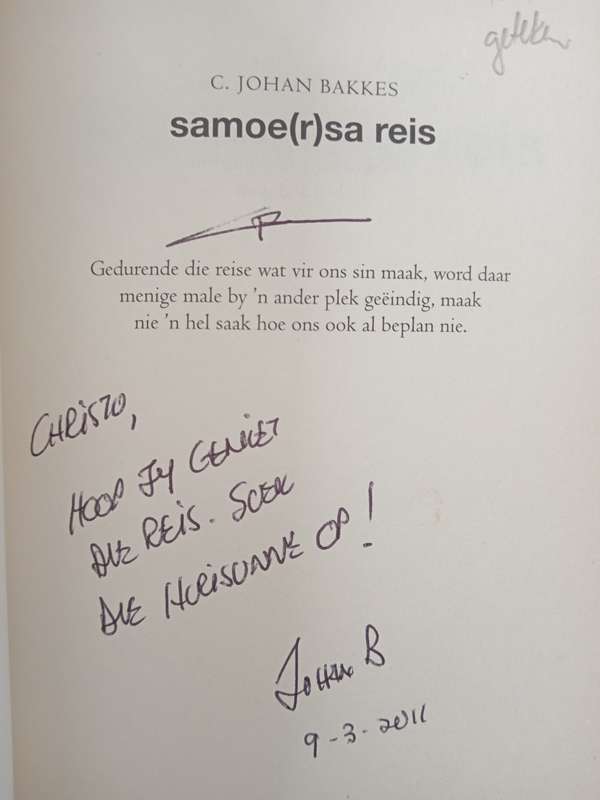 geteken
C. JOHAN BAKKES
samoe(r)sa reis
Gedurende die reise wat vir ons sin maak, word daar
menige male by 'n ander plek geëindig, maak
nie 'n hel saak hoe ons ook al beplan nie.
CHRISTO,
HOOP JY GENIET
DIE REIS. SOEK
DIE HORISONNE OP!
JOHAN B
9-3-2011